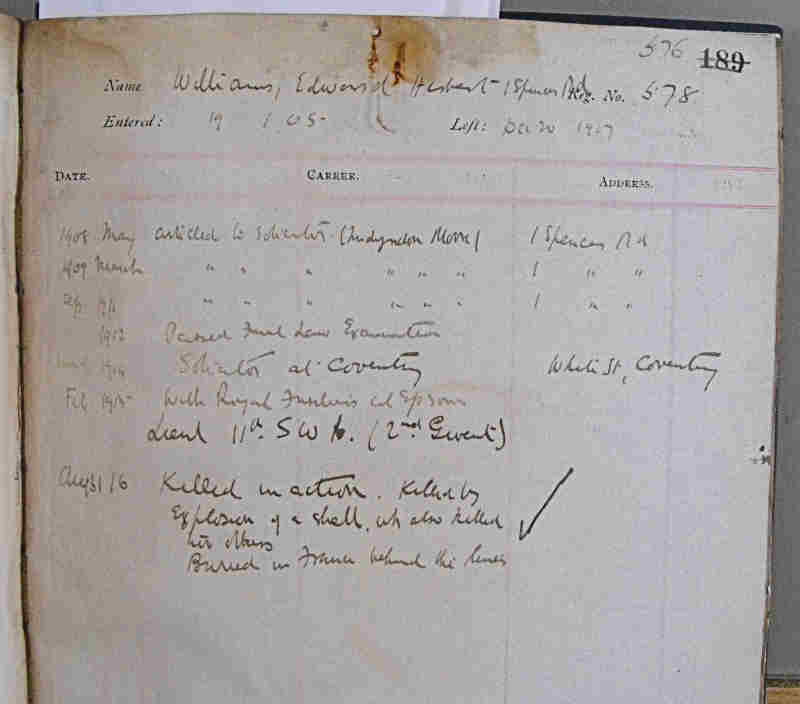 576 189
Name Williams, Edward Herbert 1 Spencer Rd Reg. No. 578
Entered: 19 1.05 Left: Dec 20 1907
DATE. CAREER. ADDRESS.
1908 May articled to Solicitor ( Moore) 1 Spencer Rd
1909 March " " " " " " 1 " "
Sep. " " " " " " 1 " "
1912 Passed Final Law Examination
1914 Solicitor at Coventry White St, Coventry
Feb 1915 With Royal Fusiliers at Epsom
Lieut 11th S W B. (2nd Gwent)
Aug 31/16 Killed in action. Killed by
Explosion of a shell, wh also killed
two others
Buried in France behind the lines